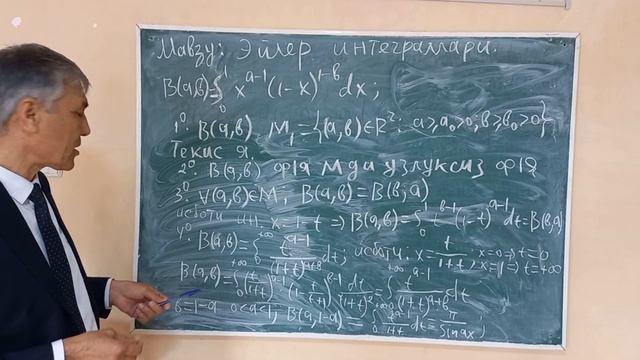 Мавзу: Эйлер интеграллари.
B(a,в)=∫₀¹ x^{a-1}(1-x)^{1-в}dx;
1⁰. B(a,в) M₁={(a,в)∈R²: a≥a₀>0; в≥в₀>0}
Текис я.
2⁰. B(a,в) ф-я M да узлуксиз ф-я
3⁰. ∀(a,в)∈M; B(a,в)=B(в;a)
исботи x=1-t ⇒ B(a,в)=∫₀¹ t^{в-1}(1-t)^{a-1}dt=B(в,a)
4⁰. B(a,в)=∫₀^{+∞} t^{a-1}/(1+t)^{a+в} dt; исботи: x=t/(1+t), x=0⇒t=0 x=1⇒t=+∞
B(a,в)=∫₀^{+∞} (t/(1+t))^{a-1} (1-t/(t+1))^{в-1} dt/(1+t)²=∫₀^{+∞} t^{a-1}/(1+t)^{a+в} dt
в=1-a 0<a<1; B(a,1-a)=∫₀^{+∞} t^{a-1}/(1+t) dt=π/sin aπ;